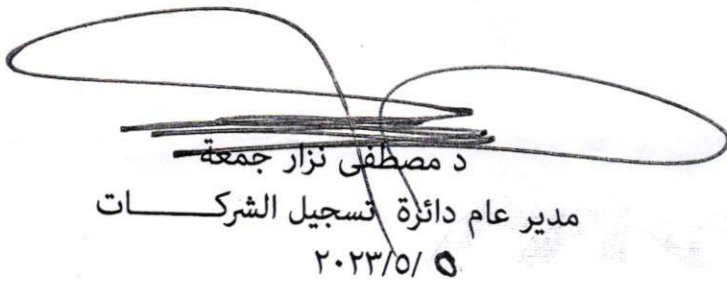 د مصطفى نزار جمعة
مدير عام دائرة تسجيل الشركــــــات
٢٠٢٣/٥/ ٥